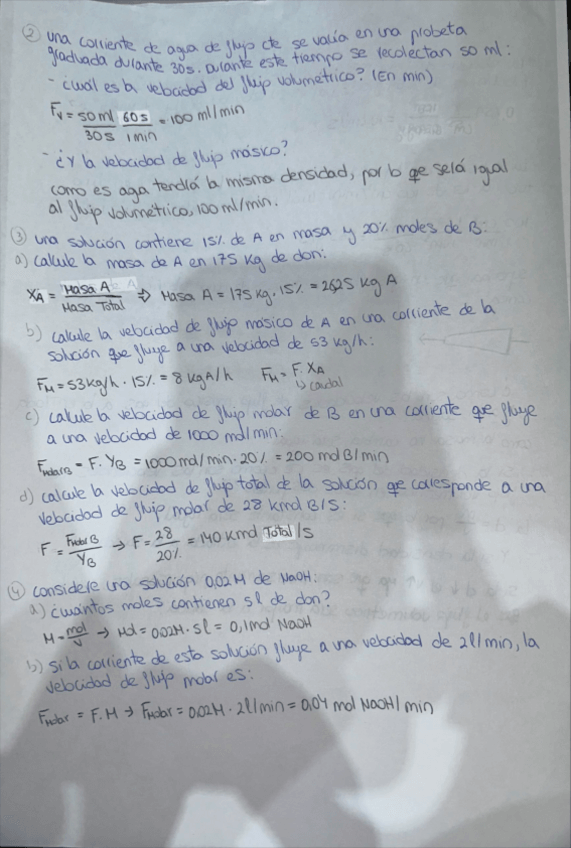 ② una corriente de agua de flujo cte se vacía en una probeta
graduada durante 30s. Durante este tiempo se recolectan 50 ml:
- ¿cuál es la velocidad del flujo volumétrico? (En min)
Fv = 50ml/30s 60s/1min = 100 ml/min
- ¿Y la velocidad de flujo másico?
como es agua tendrá la misma densidad, por lo que será igual
al flujo volumétrico, 100 ml/min.
③ una solución contiene 15% de A en masa y 20% moles de B:
a) calcule la masa de A en 175 Kg de don:
XA = Masa A/Masa Total ⇒ Masa A = 175 Kg · 15% = 26'25 Kg A
b) calcule la velocidad de flujo másico de A en una corriente de la
solución que fluye a una velocidad de 53 kg/h:
FM = 53kg/h · 15% = 8 KgA/h FM = F. XA
↳ caudal
c) calcule la velocidad de flujo molar de B en una corriente que fluye
a una velocidad de 1000 mol/min:
FmolarB = F. YB = 1000 mol/min · 20% = 200 mol B/min
d) calcule la velocidad de flujo total de la solución que corresponde a una
velocidad de flujo molar de 28 kmol B/S:
F = Fmolar B/YB → F = 28/20% = 140 Kmol Total/S
④ considere una solución 0,02 M de NaOH:
a) ¿cuántos moles contienen 5l de don?
M = mol/V → Mol = 0,02M · 5l = 0,1 mol NaOH
b) si la corriente de esta solución fluye a una velocidad de 2l/min, la
velocidad de flujo molar es:
Fmolar = F. M → Fmolar = 0,02M · 2l/min = 0,04 mol NaOH/min